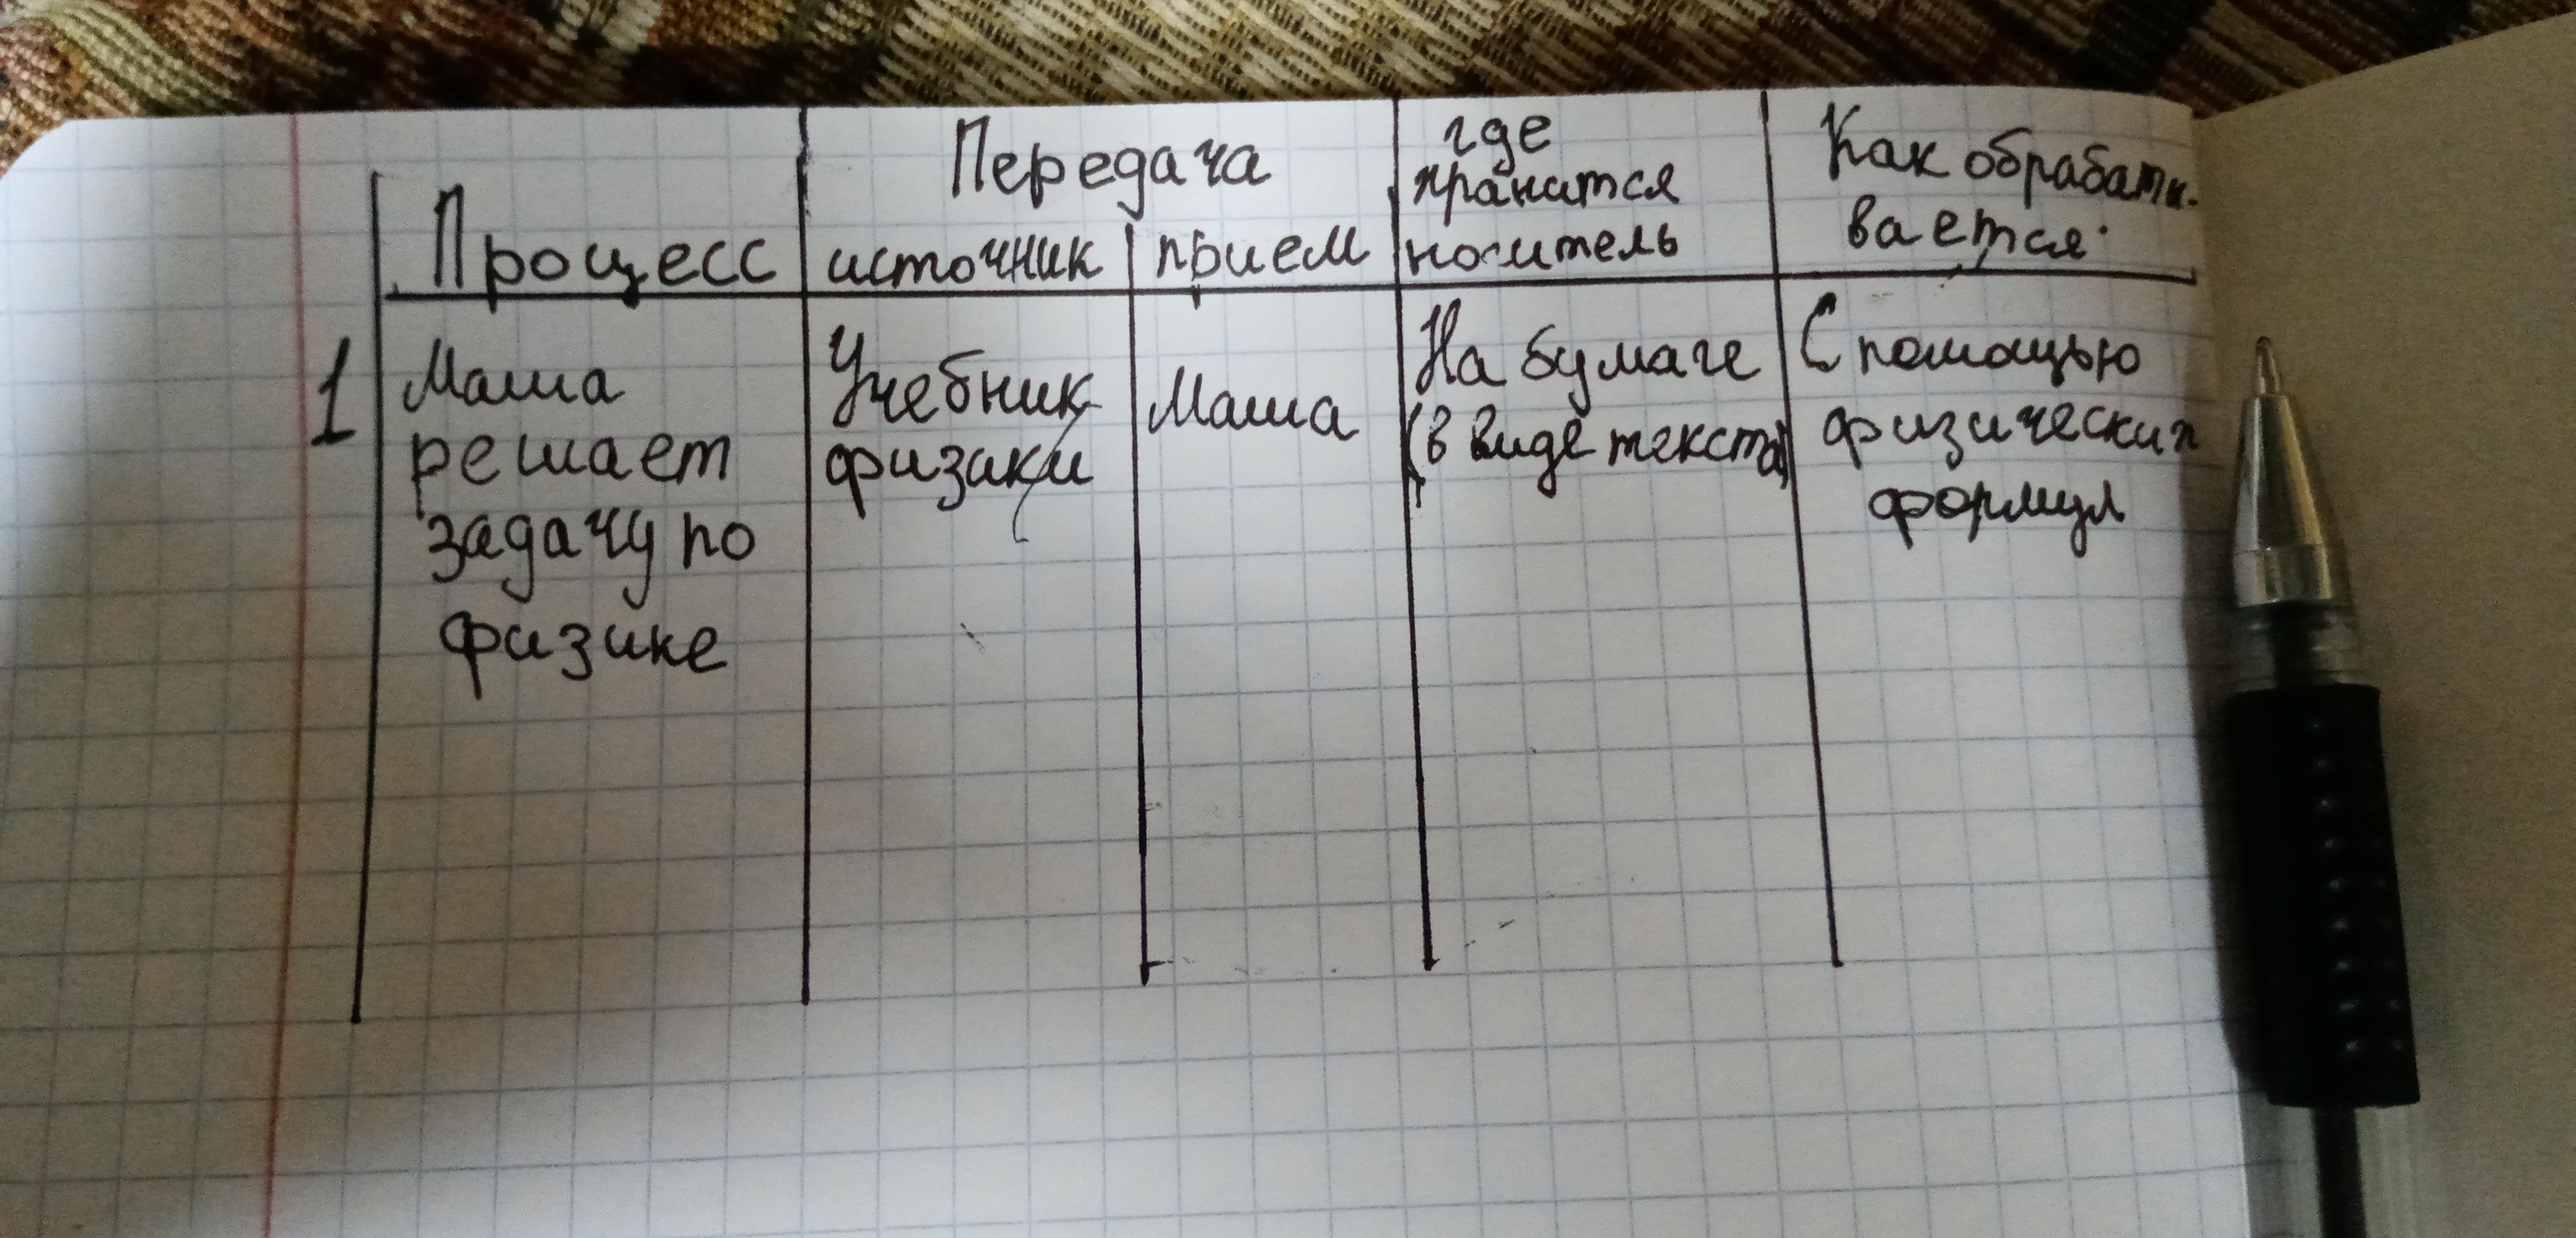 Процесс
Передача
источник
прием
где
хранится
носитель
Как обрабаты-
вается
1
Маша
решает
задачу по
физике
Учебник
физики
Маша
На бумаге
(в виде текста)
С помощью
физических
формул